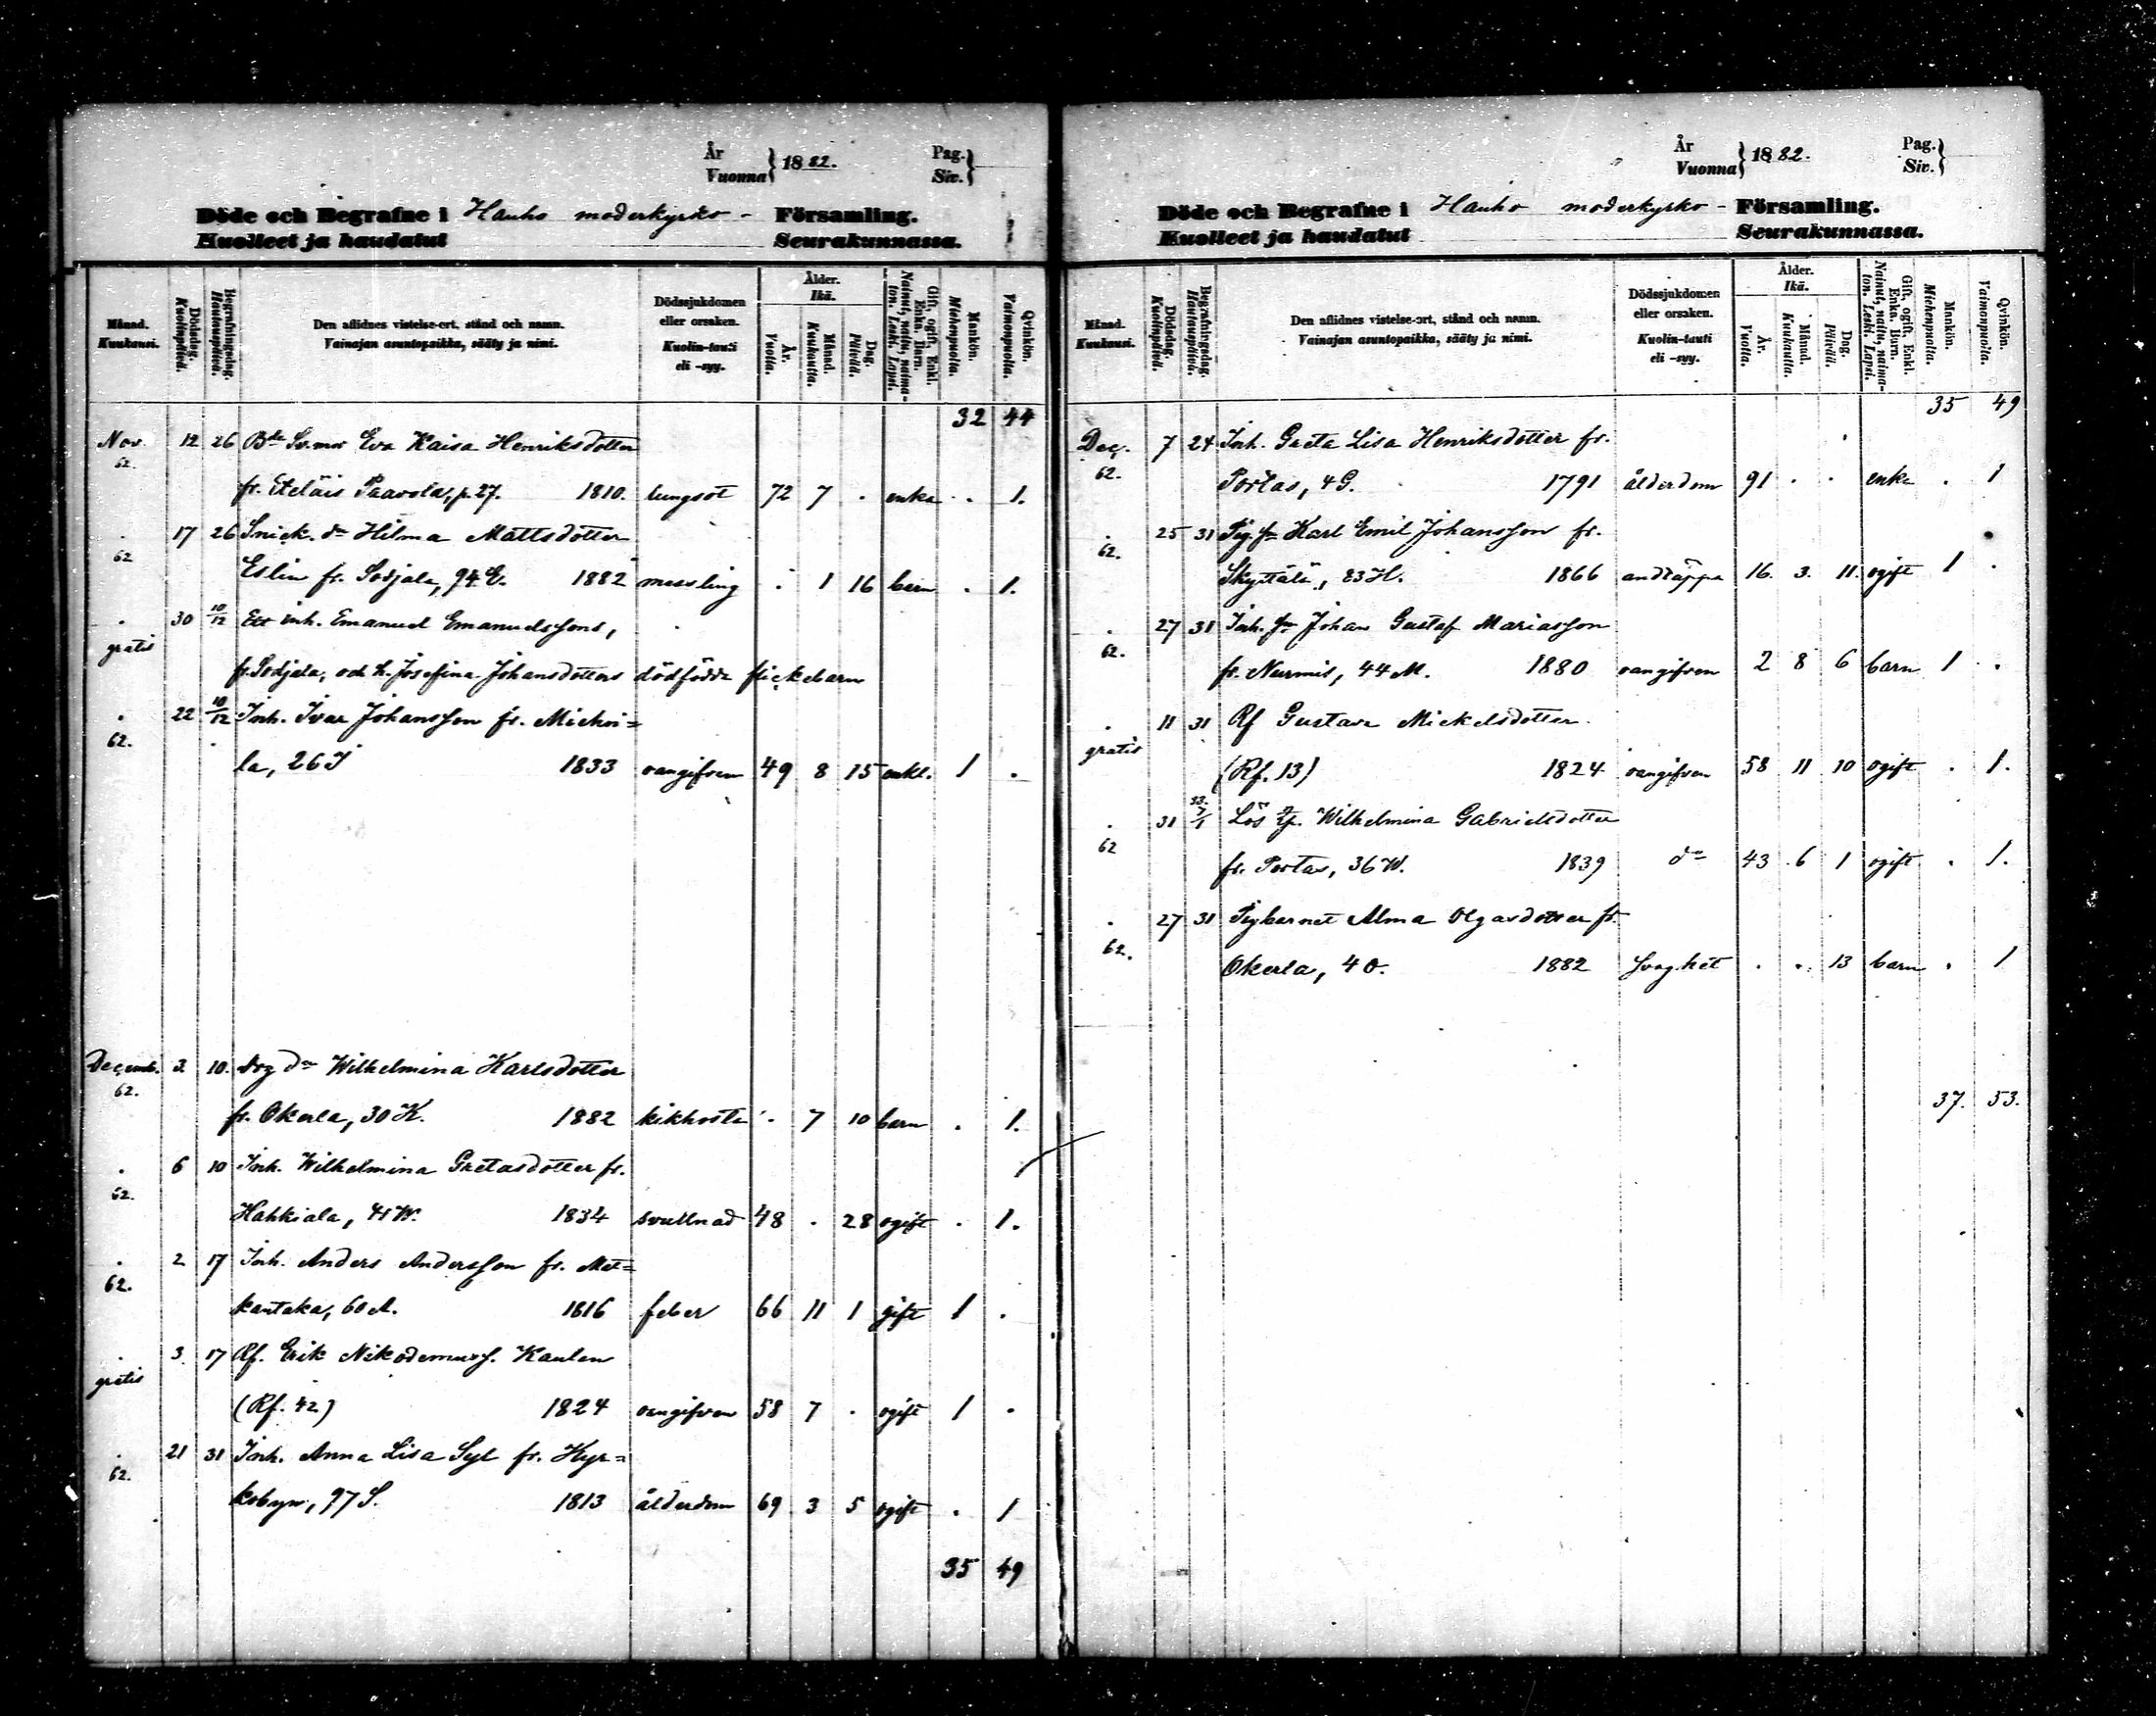 År
Vuonna } 1882.
Pag.
Siv. }
Döde och Begrafne i Hauho moderkyrko- Församling.
Kuolleet ja haudatut Seurakunnassa.
Månad. Kuukausi.
Dödsdag. Kuolinpäivä.
Begrafningsdag. Hautauspäivä.
Den aflidnes vistelse-ort, stånd och namn.
Vainajan asuntopaikka, sääty ja nimi.
Dödssjukdomen eller orsaken.
Kuolin-tauti eli -syy.
Ålder. Ikä.
År. Vuotta.
Månad. Kuukautta.
Dag. Päivää.
Gift, ogift, Enkl. Enka. Barn.
Nainut, naitu, naima-ton. Leski. Lapsi.
Mankön. Miehenpuolta.
Qvinkön. Vaimonpuolta.
32 44
Nov. 12 26 Bde Sv.mor Eva Kaisa Henriksdotter
62.
fr. Eteläis Paavola, p. 27. 1810. lungsot 72 7 . enka . 1.
. 17 26 Snick. dr Hilma Mattsdotter
62
Eslin fr. Sodjala, 94 E. 1882 messling . 1 16 barn . 1.
. 30 10/12 Ett inh. Emanuel Emanuelssons,
gratis
fr. Sodjala, och h. Josefina Johansdotters dödfödda flickebarn
. 22 10/12 Inh. Ivar Johansson fr. Michoi=
62.
la, 26 I 1833 oangifven 49 8 15 enkl. 1 .
Decemb. 3. 10. Drg dr Wilhelmina Karlsdotter
62.
fr. Okerla, 30 K. 1882 kikhosta . 7 10 barn . 1.
. 6 10 Inh. Wilhelmina Gretasdotter fr.
62.
Hahkiala, 41 W. 1834 svullnad 48 . 28 ogift . 1.
. 2 17 Inh. Anders Andersson fr. Met=
62.
kantaka, 60 A. 1816 feber 66 11 1 gift 1 .
. 3. 17 Rf. Erik Nikodemuss. Kaulen
gratis
(Rf. 42) 1824 oangifven 58 7 . ogift 1 .
. 21 31 Inh. Anna Lisa Syl fr. Kyr=
62.
kobyn, 97 S. 1813 ålderdom 69 3 5 ogift . 1
35 49
År
Vuonna } 1882.
Pag.
Siv. }
Döde och Begrafne i Hauho moderkyrko- Församling.
Kuolleet ja haudatut Seurakunnassa.
Månad. Kuukausi.
Dödsdag. Kuolinpäivä.
Begrafningsdag. Hautauspäivä.
Den aflidnes vistelse-ort, stånd och namn.
Vainajan asuntopaikka, sääty ja nimi.
Dödssjukdomen eller orsaken.
Kuolin-tauti eli -syy.
Ålder. Ikä.
År. Vuotta.
Månad. Kuukautta.
Dag. Päivää.
Gift, ogift, Enkl. Enka. Barn.
Nainut, naitu, naima-ton. Leski. Lapsi.
Mankön. Miehenpuolta.
Qvinkön. Vaimonpuolta.
35 49
Dec. 7 24 Inh. Greta Lisa Henriksdotter fr.
62.
Portas, 4 G. 1791 ålderdom 91 . . enka . 1
. 25 31 Pig. sn Karl Emil Johansson fr.
62.
Skyttälä, 83 H. 1866 andtäppa 16. 3. 11. ogift 1 .
. 27 31 Inh. sn Johan Gustaf Mariasson
62.
fr. Nurmis, 44 M. 1880 oangifven 2 8 6 barn 1 .
. 11 31 Rf Gustava Mickelsdotter
gratis
(Rf. 13) 1824 oangifven 58 11 10 ogift . 1.
. 31 Lös Wilhelmina Gabrielsdotter
62
fr. Portas, 36 W. 1839 do 43 6 1 ogift . 1.
. 27 31 Pigbarnet Alma Olgasdotter fr.
62.
Okerla, 4 O. 1882 svaghet . . 13 barn . 1
37. 53.